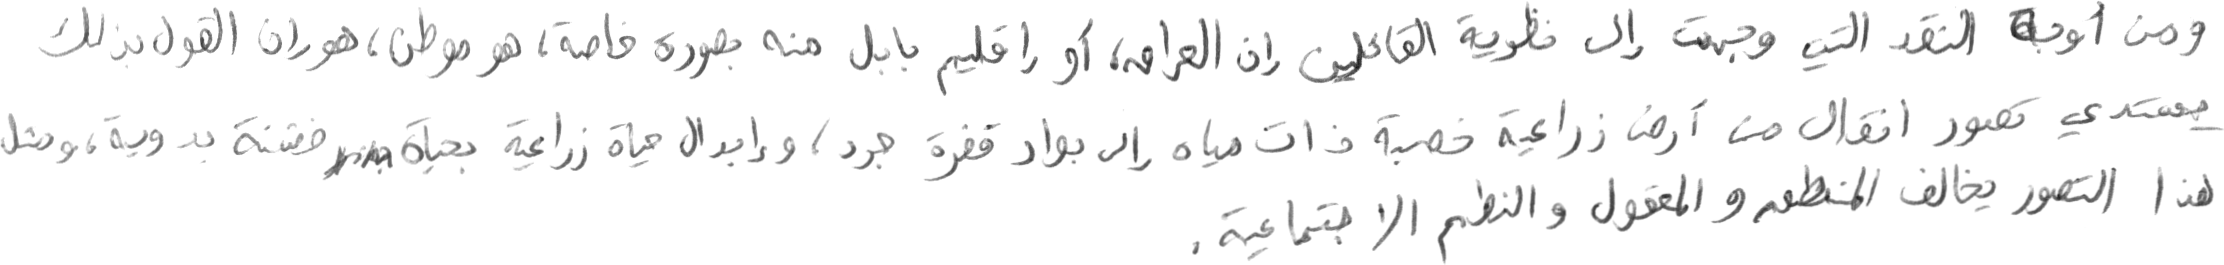 ومن أوجه النقد التي وجهت إلى نظرية القائلين إن العراق، أو إقليم بابل منه بصورة خاصة، هو موطن، هو إن القول بذلك
يستدي تصور انتقال من أرض زراعية خصبة ذات مياه إلى بواد قفرة جرد، وإبدال حياة زراعية بحياة خشنة بدوية، ومثل
هذا التصور يخالف المنطق والمعقول والنظم الاجتماعية.